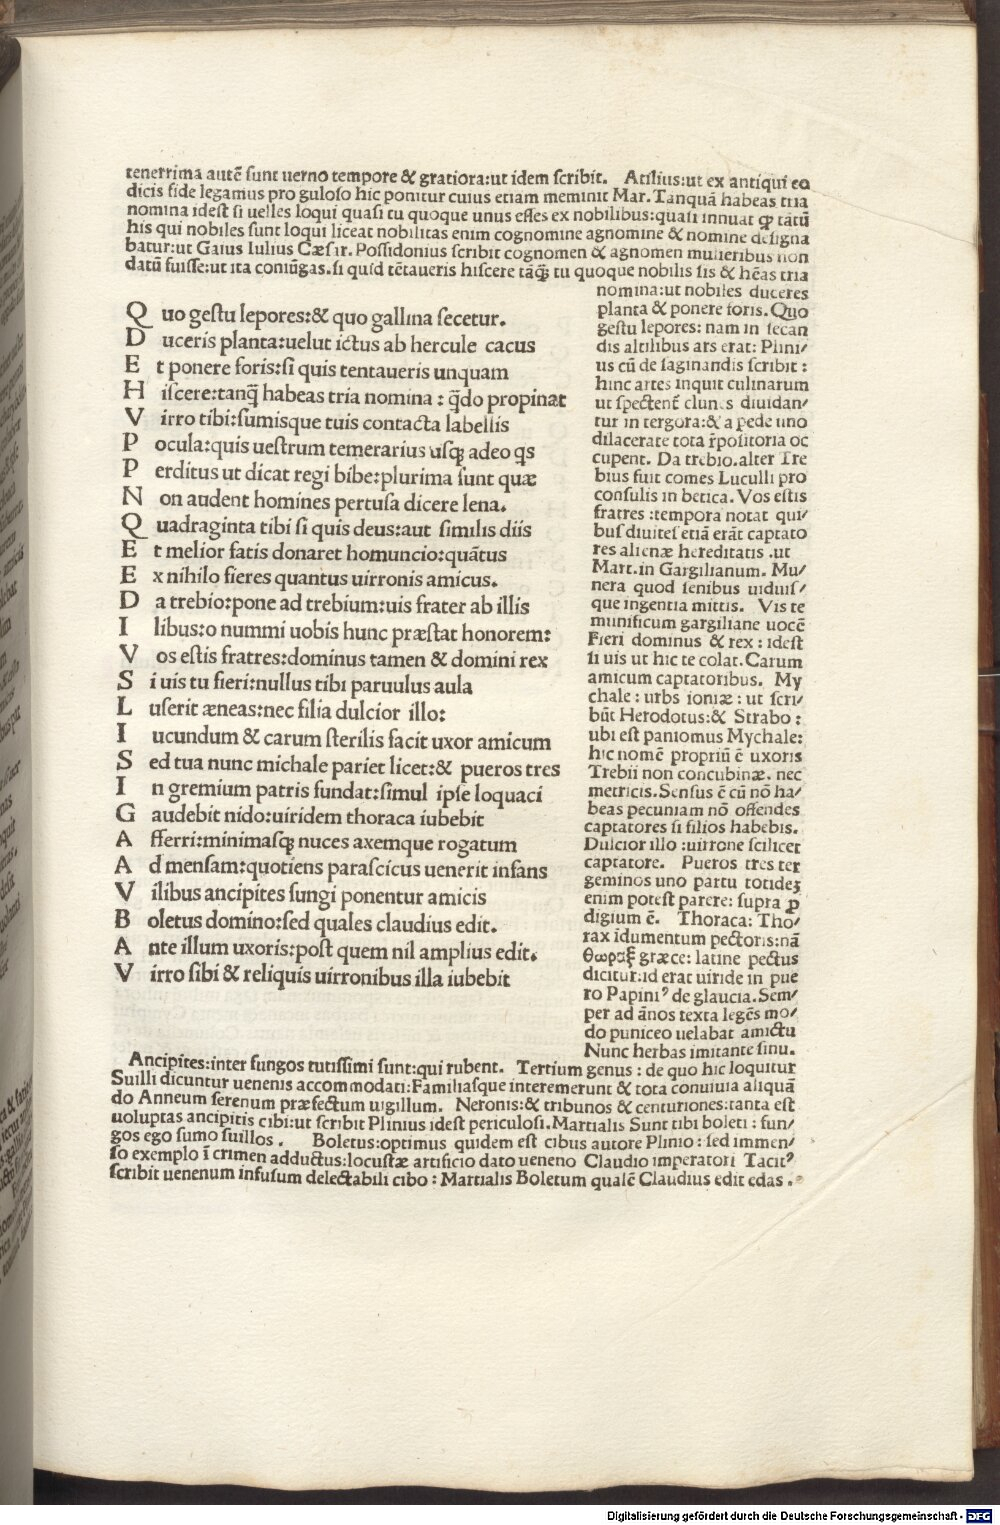 tenerrima autē sunt uerno tempore & gratiora:ut idem scribit. Atilius:ut ex antiqui co
dicis fide legamus pro guloso hic ponitur cuius etiam meminit Mar. Tanquā habeas tria
nomina idest si uelles loqui quasi tu quoque unus esses ex nobilibus:quasi innuat ꝙ tātū
his qui nobiles sunt loqui liceat nobilitas enim cognomine agnomine & nomine designa
batur:ut Gaius Iulius Cæsar. Possidonius scribit cognomen & agnomen mulieribus non
datū fuisse:ut ita coniūgas.si quid tētaueris hiscere tāꝗ̃ tu quoque nobilis sis & hēas tria
nomina:ut nobiles duceres
planta & ponere foris. Quo
gestu lepores: nam in secan
dis altilibus ars erat: Plini/
us cū de saginandis scribit :
hinc artes inquit culinarum
ut spectent̄ clunes diuidan/
tur in tergora:& a pede uno
dilacerate tota r̄positoria oc
cupent. Da trebio.alter Tre
bius fuit comes Luculli pro
consulis in betica. Vos estis
fratres :tempora notat qui/
bus diuites etiā erāt captato
res alienæ hereditatis .ut
Mart.in Gargilianum. Mu/
nera quod senibus uiduis/
que ingentia mittis. Vis te
munificum gargiliane uocē
Fieri dominus & rex : idest
si uis ut hic te colat. Carum
amicum captatoribus. My
chale : urbs ioniæ : ut scri/
būt Herodotus:& Strabo :
ubi est paniomus Mychale:
hic nomē propriū ē uxoris
Trebii non concubinæ. nec
metricis.Sensus ē cū nō ha/
beas pecuniam nō offendes
captatores si filios habebis.
Dulcior illo :uirrone scilicet
captatore. Pueros tres ter
geminos uno partu totideʒ
enim potest parere: supra ꝓ
digium ē. Thoraca: Tho/
rax īdumentum pectoris:nā
θωραξ græce: latine pectus
dicitur.id erat uiride in pue
ro Papiniꝰ de glaucia.Sem/
per ad ānos texta legēs mo/
do puniceo uelabat amictu
Nunc herbas imitante sinu.
Quo gestu lepores:& quo gallina secetur.
Duceris planta:uelut ictus ab hercule cacus
Et ponere foris:si quis tentaueris unquam
Hiscere:tanꝗ̃ habeas tria nomina : ꝗ̃do propinat
Virro tibi:sumisque tuis contacta labellis
Pocula:quis uestrum temerarius usꝗ adeo ꝗs
Perditus ut dicat regi bibe:plurima sunt quæ
Non audent homines pertusa dicere lena.
Quadraginta tibi si quis deus:aut similis diis
Et melior fatis donaret homuncio:quātus
Ex nihilo fieres quantus uirronis amicus.
Da trebio:pone ad trebium:uis frater ab illis
Ilibus:o nummi uobis hunc præstat honorem:
Vos estis fratres:dominus tamen & domini rex
Si uis tu fieri:nullus tibi paruulus aula
Luserit æneas:nec filia dulcior illo:
Iucundum & carum sterilis facit uxor amicum
Sed tua nunc michale pariet licet:& pueros tres
In gremium patris fundat:simul ipse loquaci
Gaudebit nido:uiridem thoraca iubebit
Afferri:minimasꝗ nuces axemque rogatum
Ad mensam:quotiens parascicus uenerit infans
Vilibus ancipites fungi ponentur amicis
Boletus domino:sed quales claudius edit.
Ante illum uxoris:post quem nil amplius edit.
Virro sibi & reliquis uirronibus illa iubebit
Ancipites:inter fungos tutissimi sunt:qui rubent. Tertium genus : de quo hic loquitur
Suilli dicuntur uenenis accommodati:Familiasque interemerunt & tota conuiuia aliquā
do Anneum serenum præfectum uigillum. Neronis:& tribunos & centuriones:tanta est
uoluptas ancipitis cibi:ut scribit Plinius idest periculosi.Martialis Sunt tibi boleti : fun/
gos ego sumo suillos . Boletus:optimus quidem est cibus autore Plinio : sed immen/
so exemplo ī crimen adductus:locustæ artificio dato ueneno Claudio imperatori Tacitꝰ
scribit uenenum infusum delectabili cibo : Martialis Boletum qualē Claudius edit edas .
Digitalisierung gefördert durch die Deutsche Forschungsgemeinschaft - DFG